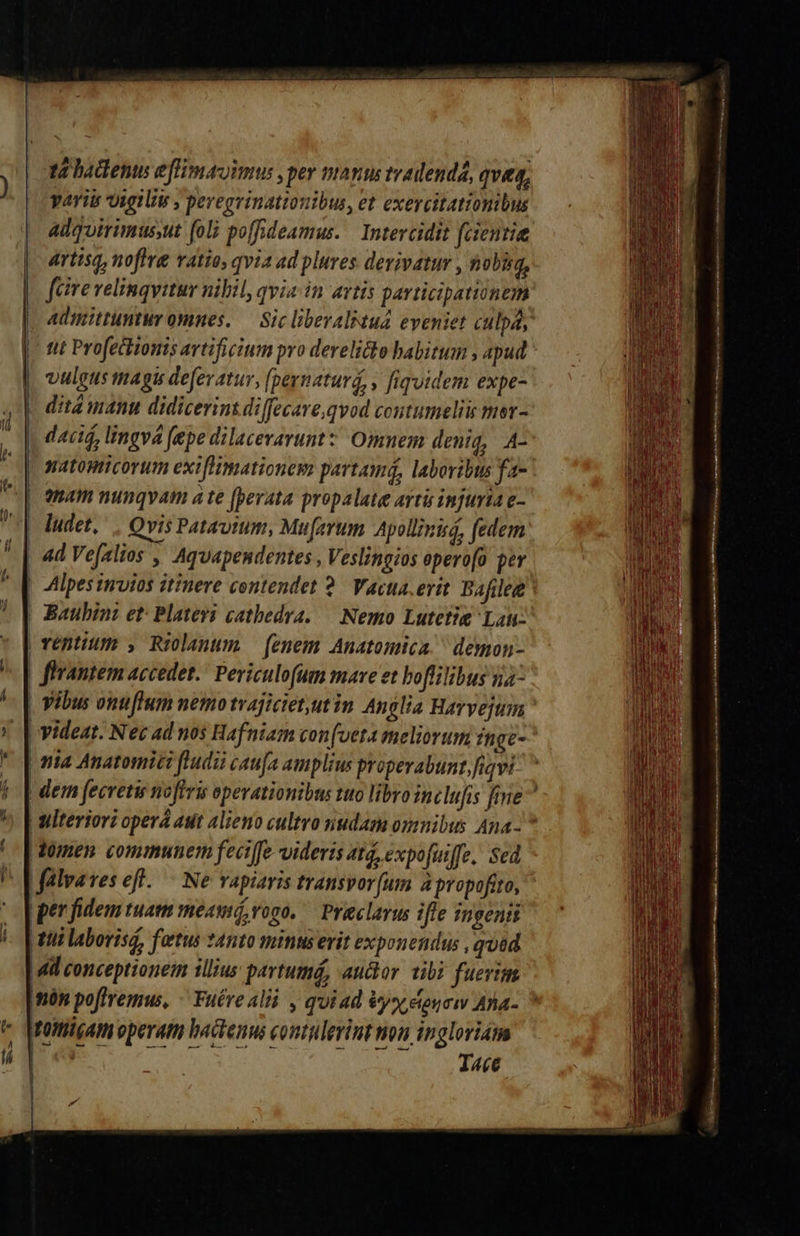 tâ hactenus æstimavimus, per manus tradendâ, qvæq́;
variis vigiliis, peregrinationibus, et exercitationibus
adqvirimus,ut soli possideamus. Intercidit scientiæ
artisq́; nostræ ratio, qvia ad plures derivatur, nobisq́;
scire relinqvitur nihil, qvia in artis participationem
admittuntur omnes. Sic liberali tuâ eveniet culpâ,
ut Prosectionis artificium pro derelicto habitum, apud
vulgus magis deferatur, spernaturq́;, siqvidem expe-
ditâ manu didicerint dissecare,qvod contumeliis mor-
daciq́; lingvâ sæpe dilacerarunt: Omnem deniq; A-
natomicorum existimationem partamq́; laboribus fa-
mam nunqvam a te sperata propalatæ artis injuria e-
ludet. Qvis Patavium, Musarum Apollinisq́; sedem
ad Vesalios, Aqvapendentes, Veslingios operoso per
Alpes invios itinere contendet? Vacua erit Basileæ
Bauhini et Plateri cathedra. Nemo Lutetiæ Lau-
rentium, Riolanum senem Anatomica demon-
strantem accedet. Periculosum mare et hostilibus na-
vibus onustum nemo trajiciet,ut in Anglia Harvejum
videat. Nec ad nos Hafniam consveta meliorum inge-
nia Anatomici studii causa amplius properabunt,siqvi-
dem secretis nostris operationibus tuo libro inclusis sine
ulteriori operâ aut alieno cultro nudam omnibus Ana-
tomen communem fecisse videris atq́; exposuisse. Sed
salva res est. Ne rapiaris transvorsum à proposito,
per fidem tuam meamq́; rogo. Præclarus iste ingenii
tui laborisq́; fœtus tanto minus erit exponendus, qvod
ad conceptionem illius partumq́; auctor tibi fuerim
non postremus. Fuêre alii, qui ad ἐγχείρησιν Ana-
tomicam operam hactenus contulerint non ingloriam
Tace